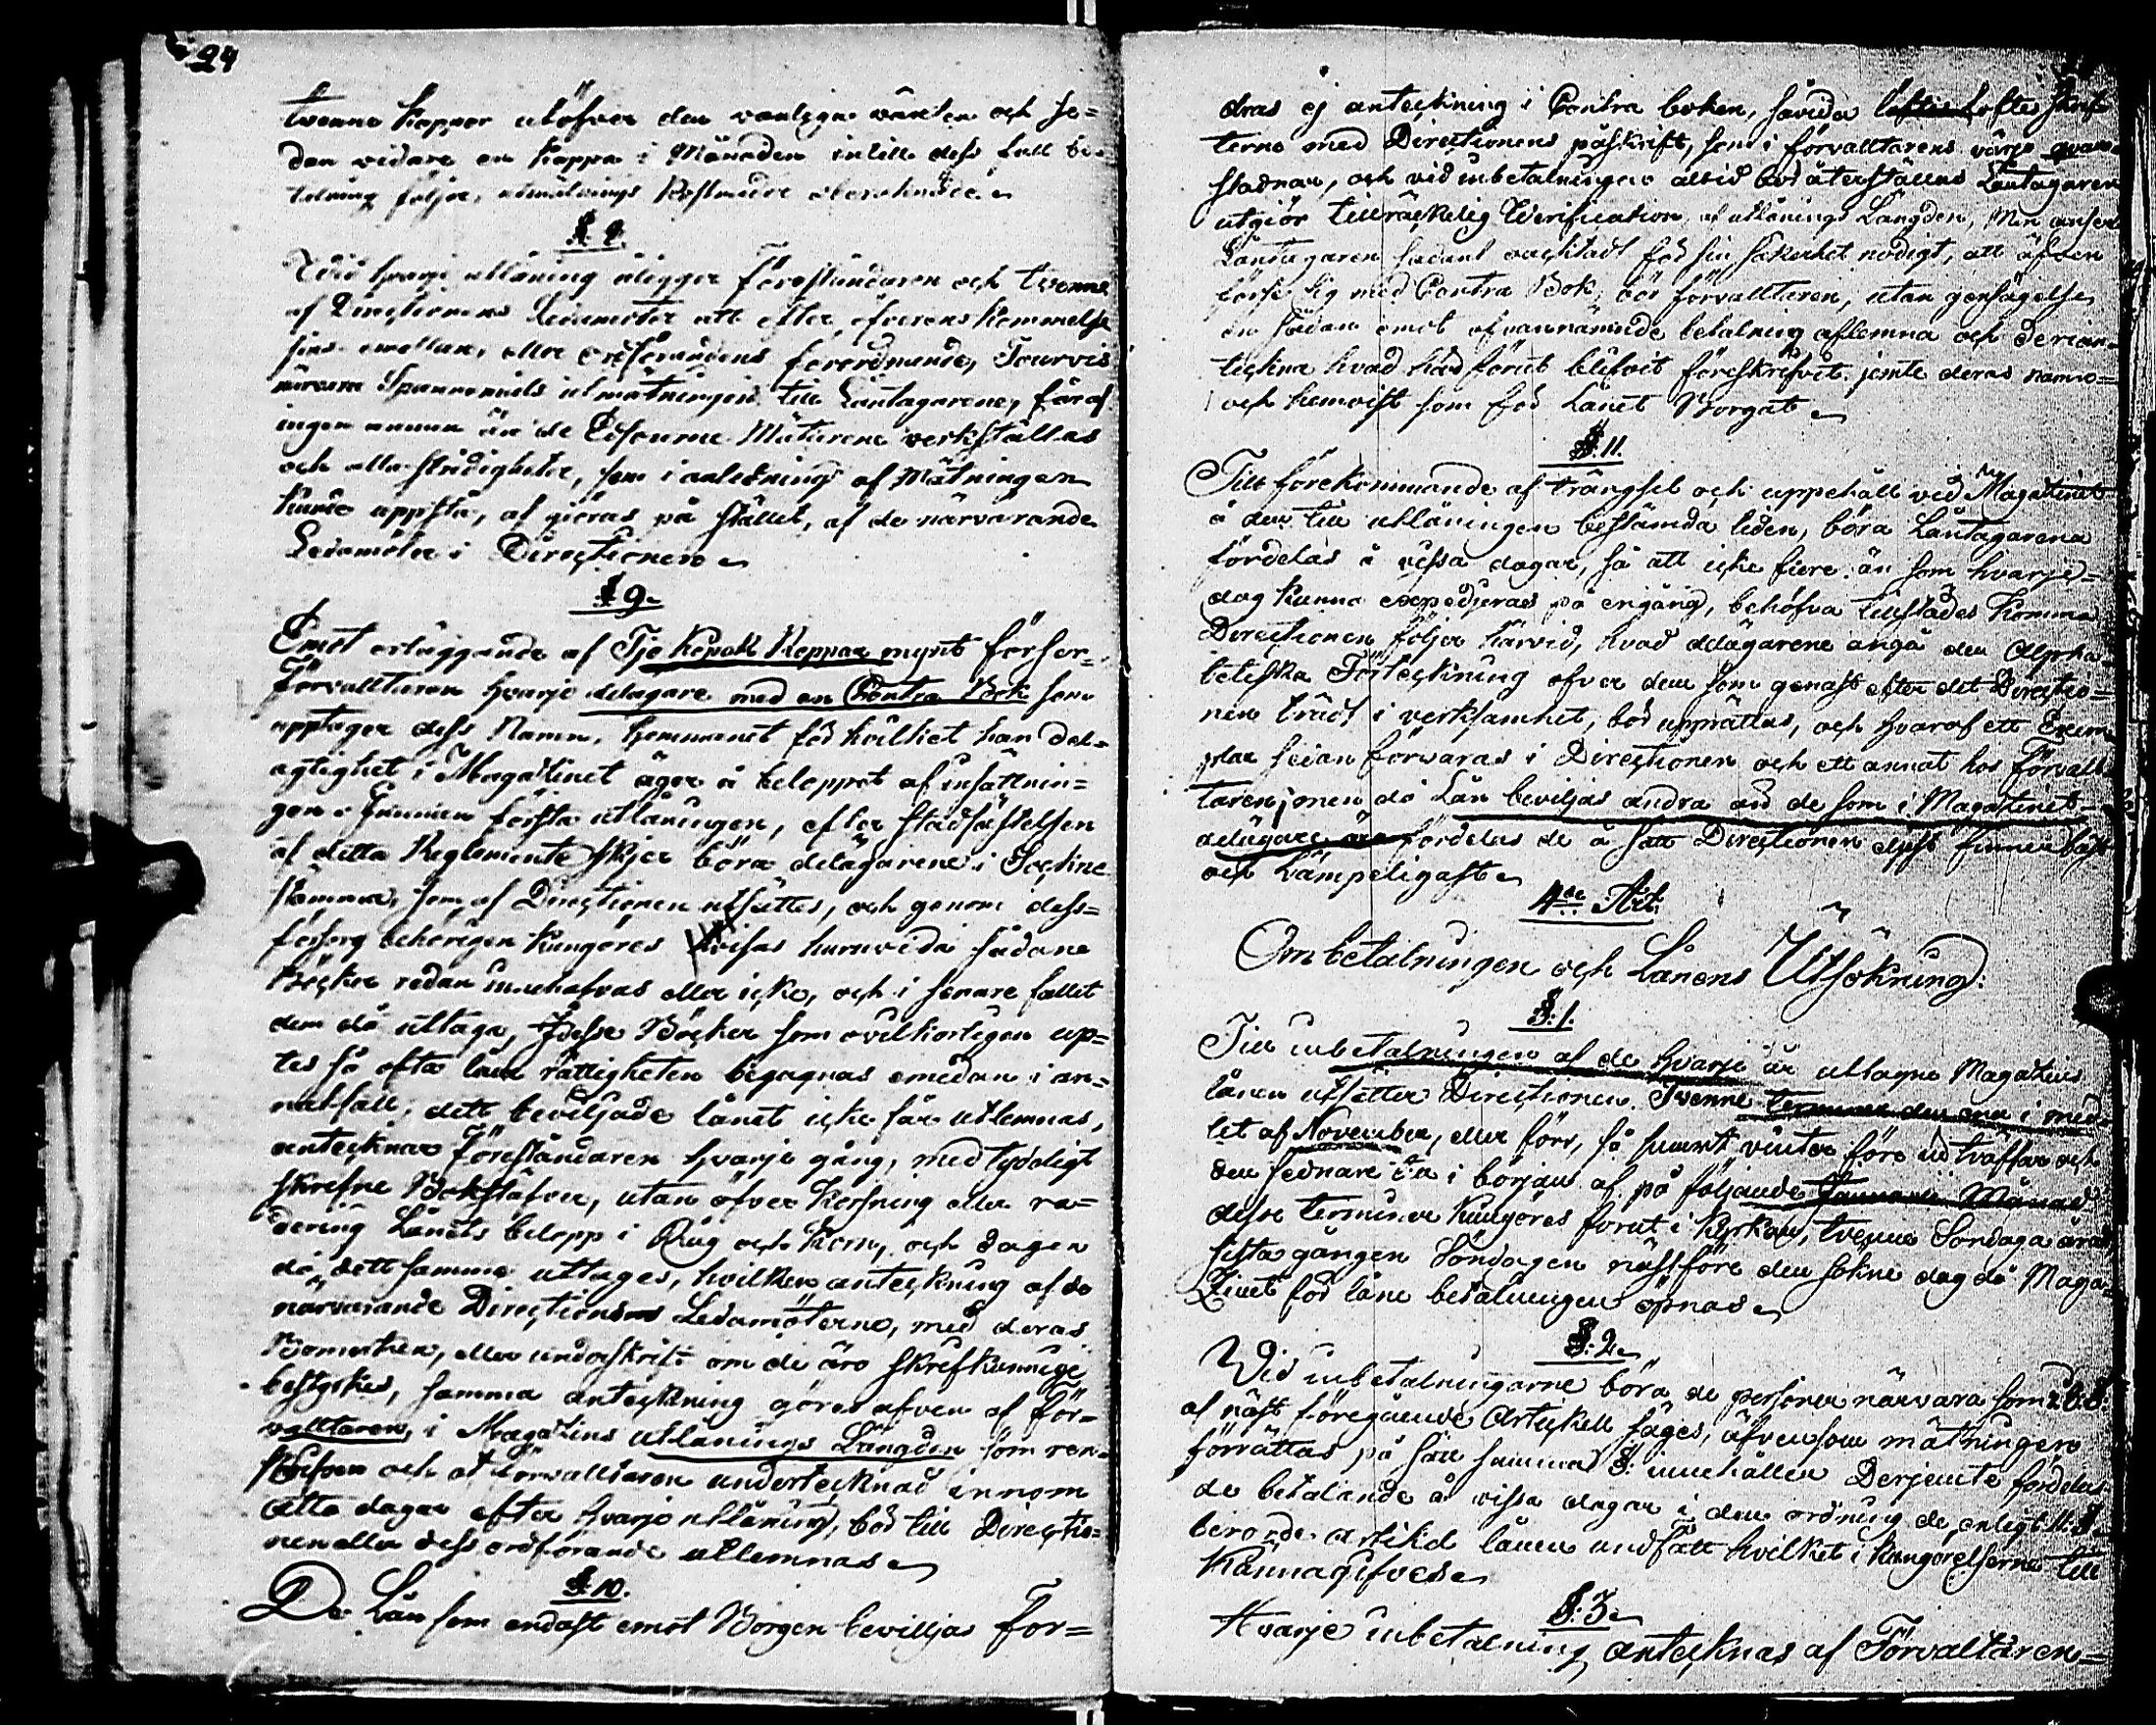 24
tvenne Kappor utöfver den vanliga räntan och se=
dan vidare en Kappa i Månaden intill dess full be=
talning följer, utmätnings Kostnader oberäknade.
§ 8.
Wid hvarje utlåning åligger Föreståndaren och tvenne
af Directionens Ledamöter att efter öfverens Kommelse
sins emellan, eller ordförandens förordnande, Tourvis
närvara Spannemåls utmätningen till Låntagarene, får af
ingen annan än de Edsvurne Mätarene verkställas
och alla stridigheter, som i anledning af Mätningen
kunde uppstå, af göras på stället, af de närvarande
Ledamöter i Directionen
§ 9.
Emot erläggande af Tjo Kopak Koppar mynt förser
Förvalltaren hvarje delagare med en Contra Bok som
upptager dess Namn, hemmanet för hvilket han del=
agtighet i Magatinet äger å beloppet af insättnin=
gen. Innan första utlåningen, efter stadfästelsen
af detta Reglemente skjer böra delägarene i Sockne
stämma, som af Directionen utsättes, och genom dess=
försorg behörigen kungöres visas huruvida sådane
Böcker redan innehafvas eller icke, och i senare fallet
dem då uttaga, Desse Böcker som ovilkorligen up=
tes så ofta låne rättigheten begagnas emedan i an=
nat fall, dett beviljade lånet icke får utlemnas,
antecknar Föreståndaren hvarje gång, med tydeligt
skrefne Bokstäfver, utan öfver korsning eller ra=
dering Lånets belopp i Råg och Korn, och dagen
då dett samma uttages, hvilken anteckning af de
närvarande Directions Ledamöterne, med deras
Bomerken, eller underskrift om de äro skrifkunnige
bestyrkes, samma anteckning göres afven af för=
valltaren, i Magatins utlånings Längden som ren=
skrifven och af Förvalltaren undertecknad innom
åtta dagar efter hvarje utlåning, bör till Directio=
nen eller dess ordförande utlemnas
§ 10.
De Lån som endast emot Borgen bevilljas for=
dras ej anteckning i Contra boken, såvida Lofte skrif
terne med Directionens påskrift, som i förvalltarens värjo qvar
stadnar, och vid inbetalningen altid bör återställas Låntagaren
utgiör tillräckelig Werification af utlånings Längden, Men anser
Låntagaren sådant oachtadt för sin säkerhet nödigt, att äfven
förse sig med Contra Bok, bör förvalltaren, utan gensägelse
en sådan emot ofvannämnde betalning aflemna och deri an
teckna hvad här förut blifvit föreskrifvit. jemte deras namn=
och hemvist som för Lånet Borgat
§. 11.
Till förekommande af trängsel och uppehåll vid Magatinet
å den till utlåningen bestämda tiden, böra Låntagarena
fördelas å vissa dagar, så att icke flere än som hvarje=
dag kunna expedieras på en gång, behöfva tillstädes komma
Directionen följer härvid, hvad delägarene angå den Alpha=
betiska Förteckning ofver dem som genast efter det Directio=
nen trädt i verksamhet, bör upprättas, och hvaraf ett Exem
plar sedan förvaras i Directionen och ett annat hos Förvalt
taren, men då Lån beviljas andra än de som i Magatinet
delägare äro fördelas de å sätt Directionen elljest finner bäst
och lämpeligast
4de Art.
Om betalningen och Lånens Utsökning:
§. 1.
Till inbetalningen af de hvarje år uttagne Magatins
lånen utsätter Directionen Tvenne terminer den ena i med
let af November, eller förr, så snart vinter före inträffar och
den sednare i början af på följande Januarii Månad
desse terminer kungöres förut i Kyrkan, tvenne Söndagar å rad
sista gången Söndagen näst före den sökne dag då Maga
zinet för låne betalningen öpnas
§. 2.
Wid inbetalningarne böra de personer närvara som i 8. §.
af näst föregående Artickell säges, äfvensom mätningen
förrättas på sätt samma §. innehåller Derjemte fördelas
de betalande å vissa dagar i den ordning de, enligt 11. §
berorde artikel lånen undfått hvilket i kungörelserne till
kännagifves
§. 3.
Hvarje inbetalning antecknas af Förvaltaren=